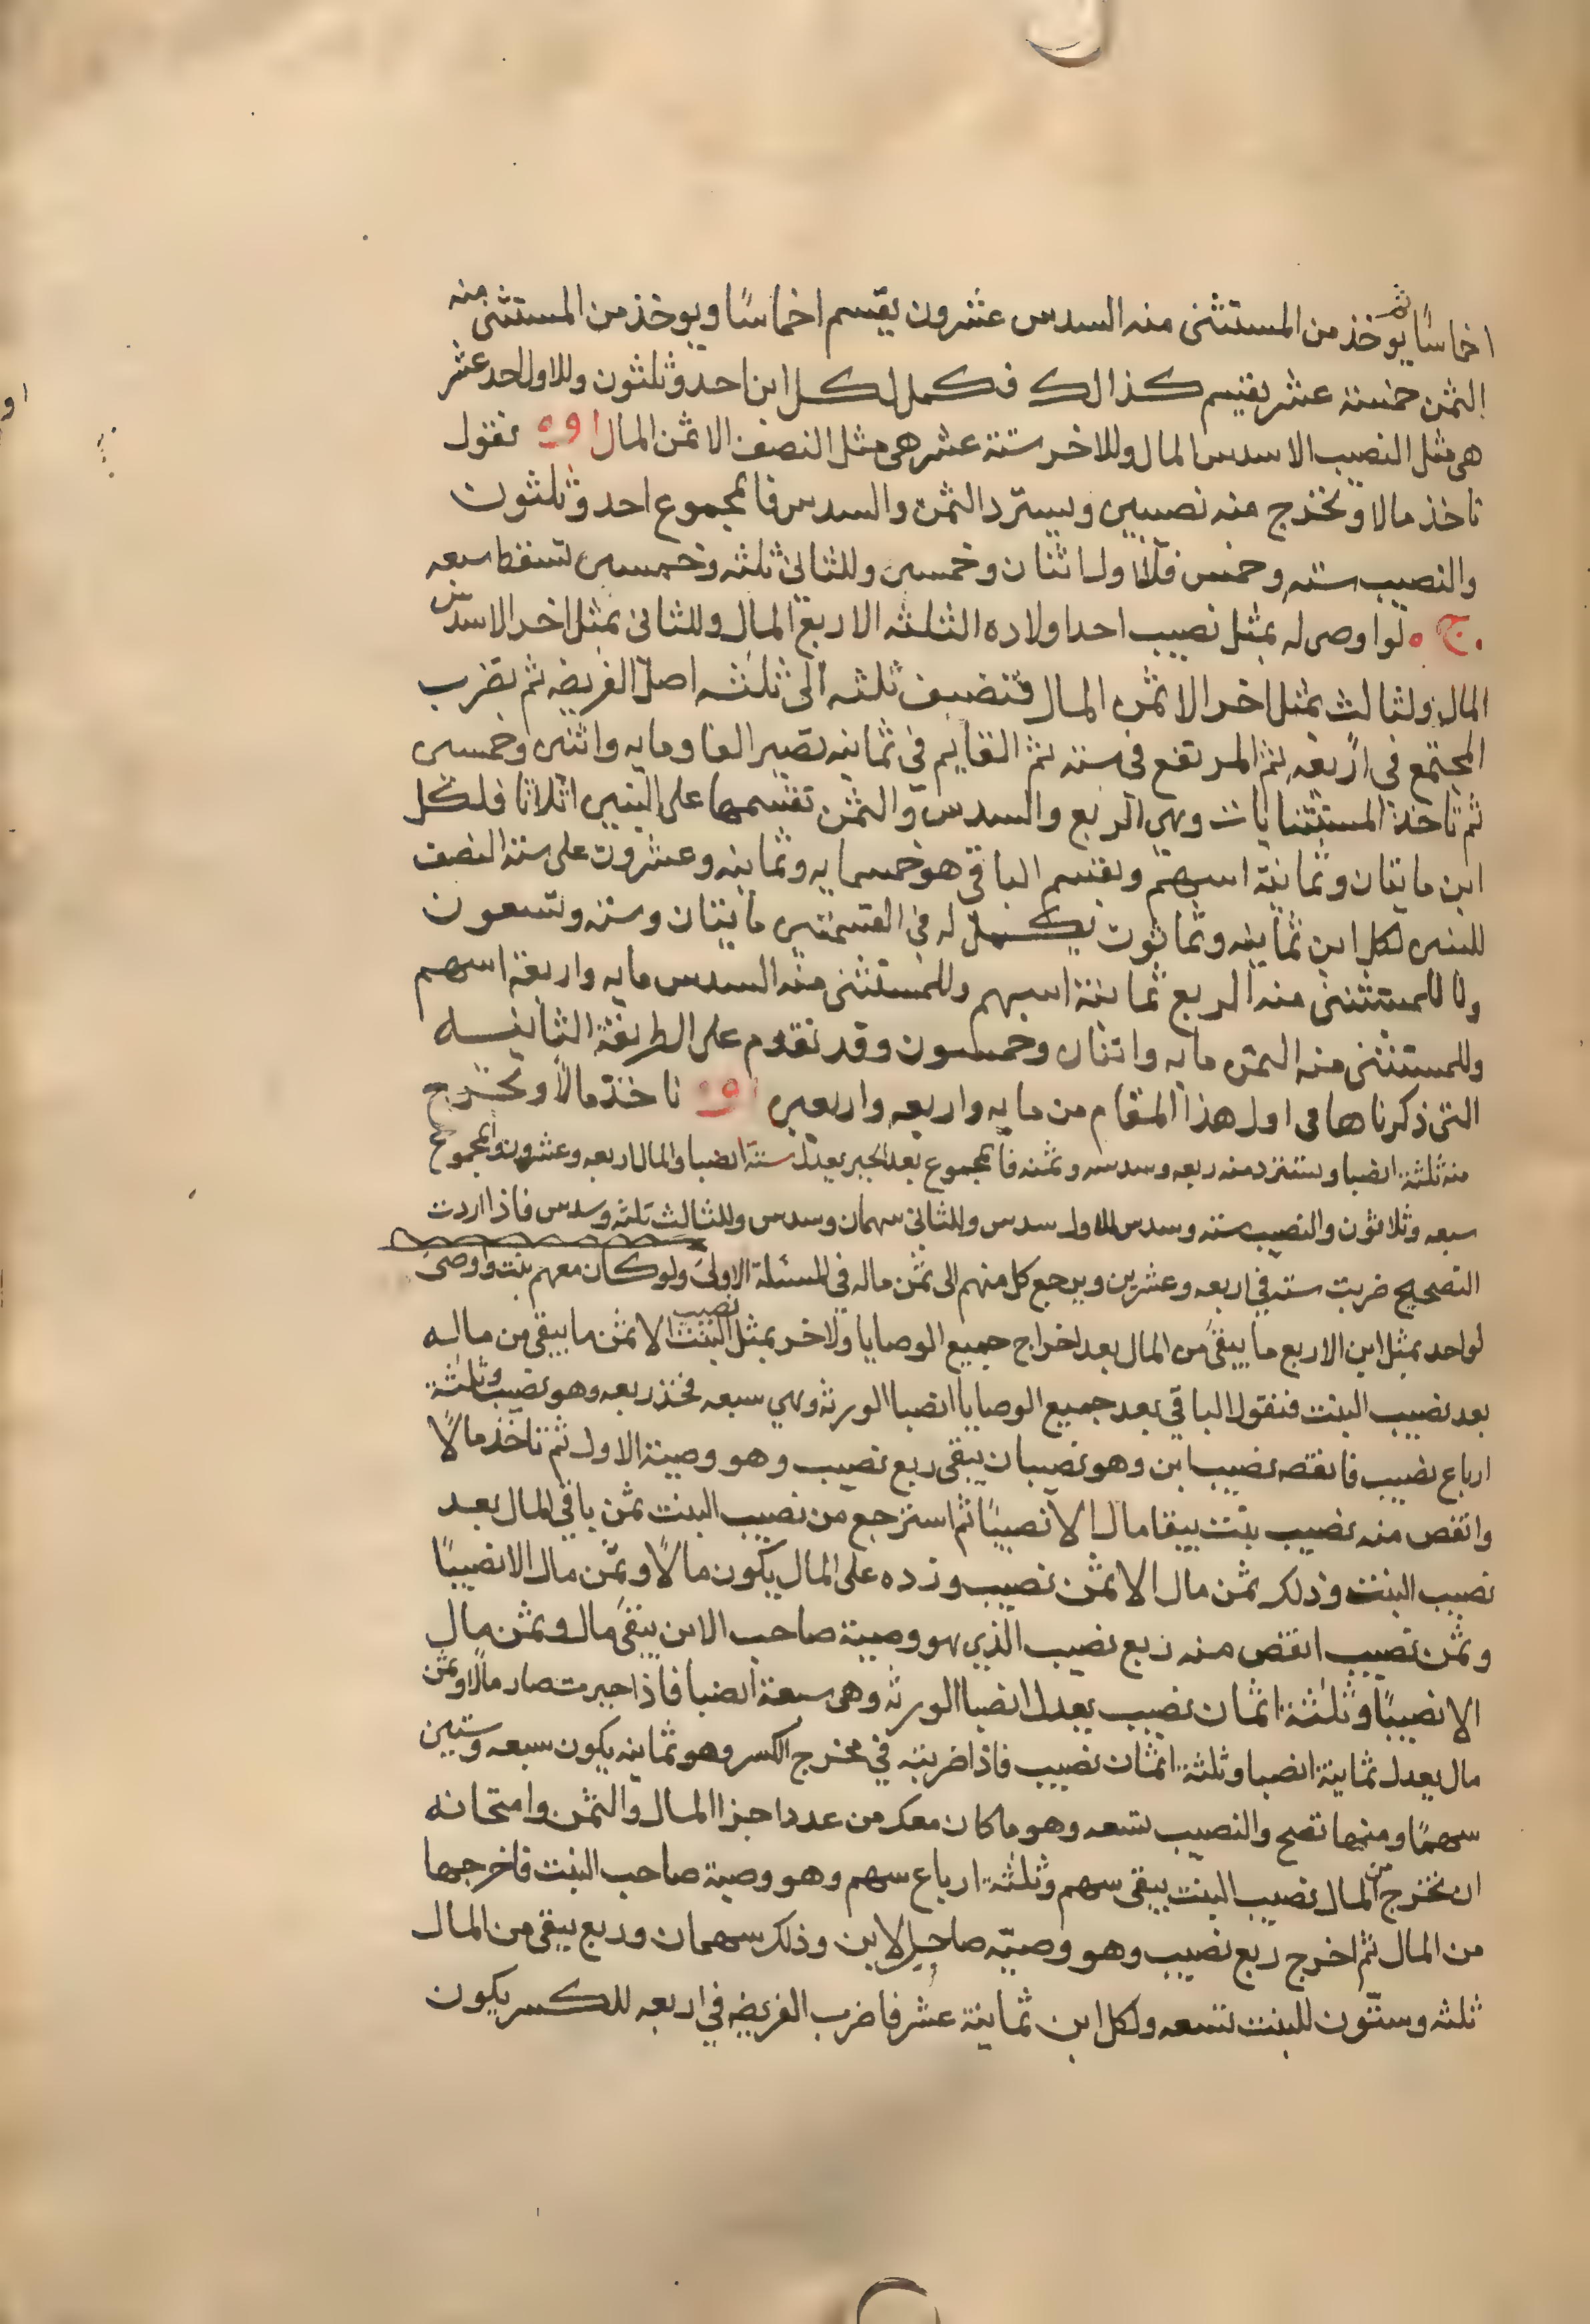 اخماسًا ثم يوخذ من المستثنى منه السدس عشرون يقسم اخماسًا ويوخذ من المستثنى منه
الثمن خمسة عشر يقسم كذالك فكمل لكل ابن احد وثلثون وللاول احد عشر
هي مثل النصيب الا سدس المال وللاخر ستة عشر هي مثل النصف الا ثمن المال او نقول
ناخذ مالا ونخرج منه نصيبين ويسترد الثمن والسدس فالمجموع احد وثلثون
والنصيب سته وخمس فللاول اثنان وخمسين وللثاني ثلثه وخمسين لتسقط سبعه
ج لو اوصى له بمثل نصيب احد اولاده الثلثه الا ربع المال وللثاني بمثل اخر الا سدس
المال ولثالث بمثل اخر الا ثمن المال فتضيف ثلثه الى ثلثه اصل الفريضه ثم تضرب
المجتمع في اربعه ثم المرتفع في سته ثم القايم في ثمانيه تصير الفا ومايه واثنين وخمسين
ثم تاخذ المستثنايات وهي الربع والسدس والثمن تقسمها على البنين اثلاثا فلكل
ابن مايتان وثمانية اسهم ويقسم الباقي هو خمسمايه وثمانيه وعشرون على ستة النصف
للبنين لكل ابن ثمانيه وثمانون يكمل له في القسمتين مايتان وسته وتسعون
وللمستثنى منه الربع ثمانية اسهم وللمستثنى منه السدس مايه واربعة اسهم
وللمستثنى منه الثمن مايه واثنان وخمسون وقد تقدم على الطريقة الثانيه
التي ذكرناها في اول هذا المقام من مايه واربعه واربعين او ناخذ مالا ونخرج
منه ثلثة انصبا ويسترد منه ربعه وسدسه وثمنه فالمجموع بعد الجبر يعدل ستة انصبا والمال اربعه وعشرون والمجموع
سبعه وثلاثون والنصيب سته وسدس للاول سدس وللثاني سهمان وسدس وللثالث ثلثه وسدس فاذا اردت
التصحيح ضربت سته في اربعه وعشرين ويرجع كل منهم الى ثمن ماله في المسئلة الاولى ولو كان معهم بنت واوصى
لواحد بمثل ابن الا ربع ما يبقى من المال بعد اخراج جميع الوصايا ولاخر بمثل نصيب البنت الا ثمن ما يبقى من ماله
بعد نصيب البنت فنقول الباقي بعد جميع الوصايا انصبا الورثه وهي سبعه فخذ ربعه وهو نصيب وثلثة
ارباع نصيب فانقصه نصيب ابن وهو نصيبان يبقى ربع نصيب وهو وصية الاول ثم تاخذ مالًا
وانقص منه نصيب بنت يبقا مال الا نصيبًا ثم استرجع من نصيب البنت ثمن باقي المال بعد
نصيب البنت وذلك ثمن مال الا ثمن نصيب وزده على المال يكون مالًا وثمن مال الا نصيبًا
وثمن نصيب انقص منه ربع نصيب الذي هو وصية صاحب الابن يبقى مال وثمن مال
الا نصيبًا وثلثة اثمان نصيب يعدل انصبا الورثه وهي سبعة انصبا فاذا جبرت صار مالًا وثمن
مال يعدل ثمانية انصبا وثلثة اثمان نصيب فاذا ضربته في مخرج الكسر وهو ثمانيه يكون سبعه وستين
سهمًا ومنها تصح والنصيب تسعه وهو ما كان معك من عدد اجزا المال والثمن وامتحانه
ان تخرج من المال نصيب البنت يبقى سهم وثلثة ارباع سهم وهو وصية صاحب البنت فاخرجها
من المال ثم اخرج ربع نصيب وهو وصيّه صاحب الابن وذلك سهمان وربع يبقى من المال
ثلثه وستّون للبنت تسعه ولكل ابن ثمانية عشر فاضرب الفريضه في اربعه للكسر يكون